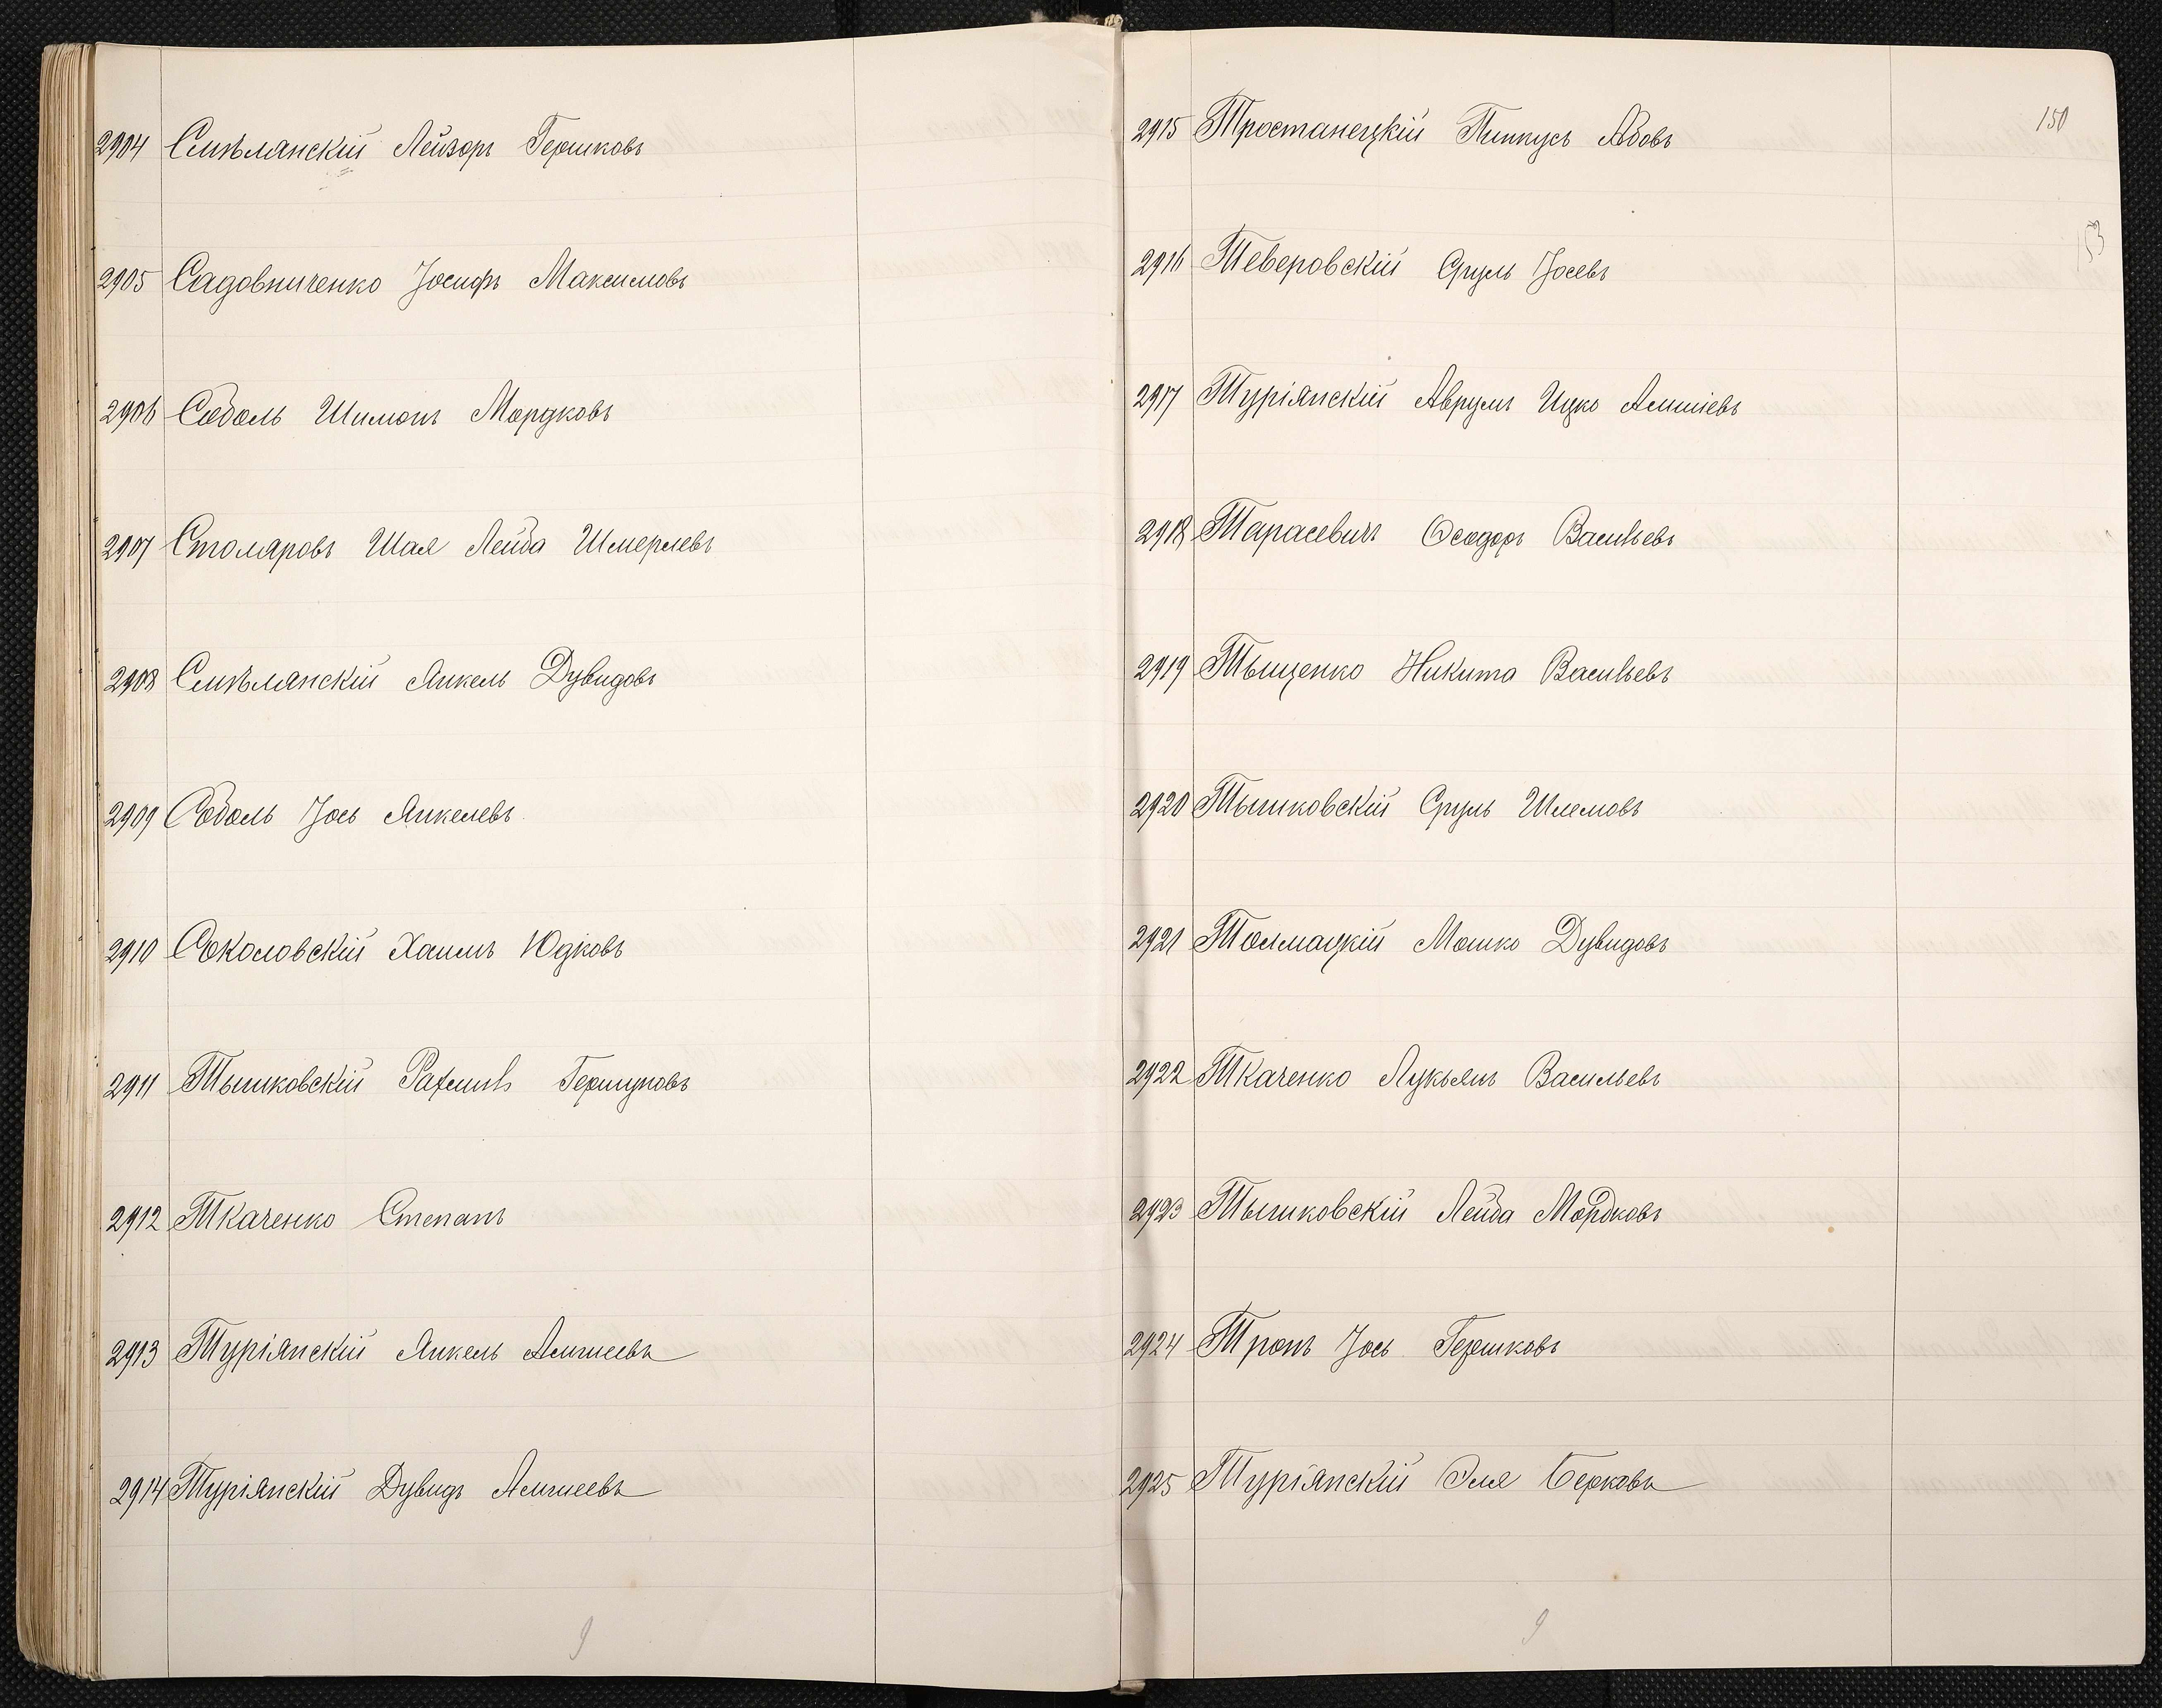 2904 Смѣлянскій Лейзоръ Гершковъ
2905 Садовниченко Іосифъ Максимовъ
2906 Соболь Шимонъ Мордковъ
2907 Столяровъ Шая Лейба Шмерлевъ
2908 Смѣлянскій Янкель Дувидовъ
2909 Соболь Іось Янкелевъ
2910 Соколовскій Хаимъ Юдковъ
2911 Тышковскій Рахмиль Гершуновъ
2912 Ткаченко Степанъ
2913 Туріянскій Янкель Алтшеевъ
2914 Туріянскій Дувидъ Алтшеевъ
9
150
153
2915 Тростанецкій Пинкусъ Абовъ
2916 Теверовскій Сруль Іосевъ
2917 Туріянскій Аврумъ Ицко
2918 Тарасевичъ Ѳеодоръ Васильевъ
2919 Тыщенко Никита Васильевъ
2920 Тышковскій Сруль Шлемовъ
2921 Толмацкій Мошко Дувидовъ
2922 Ткаченко Лукьянъ Васильевъ
2923 Тышковскій Лейба Мордковъ
2924 Тронъ Іось Гершковъ
2925 Туріянскій Эля Берковъ
9